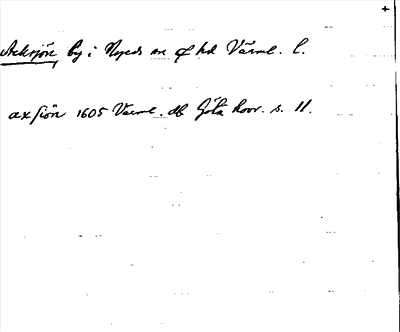 Acksjön, by i Nyeds sn o hd Värml. l.
axsiön 1605 Värml. db Göta hovr. s. 11.